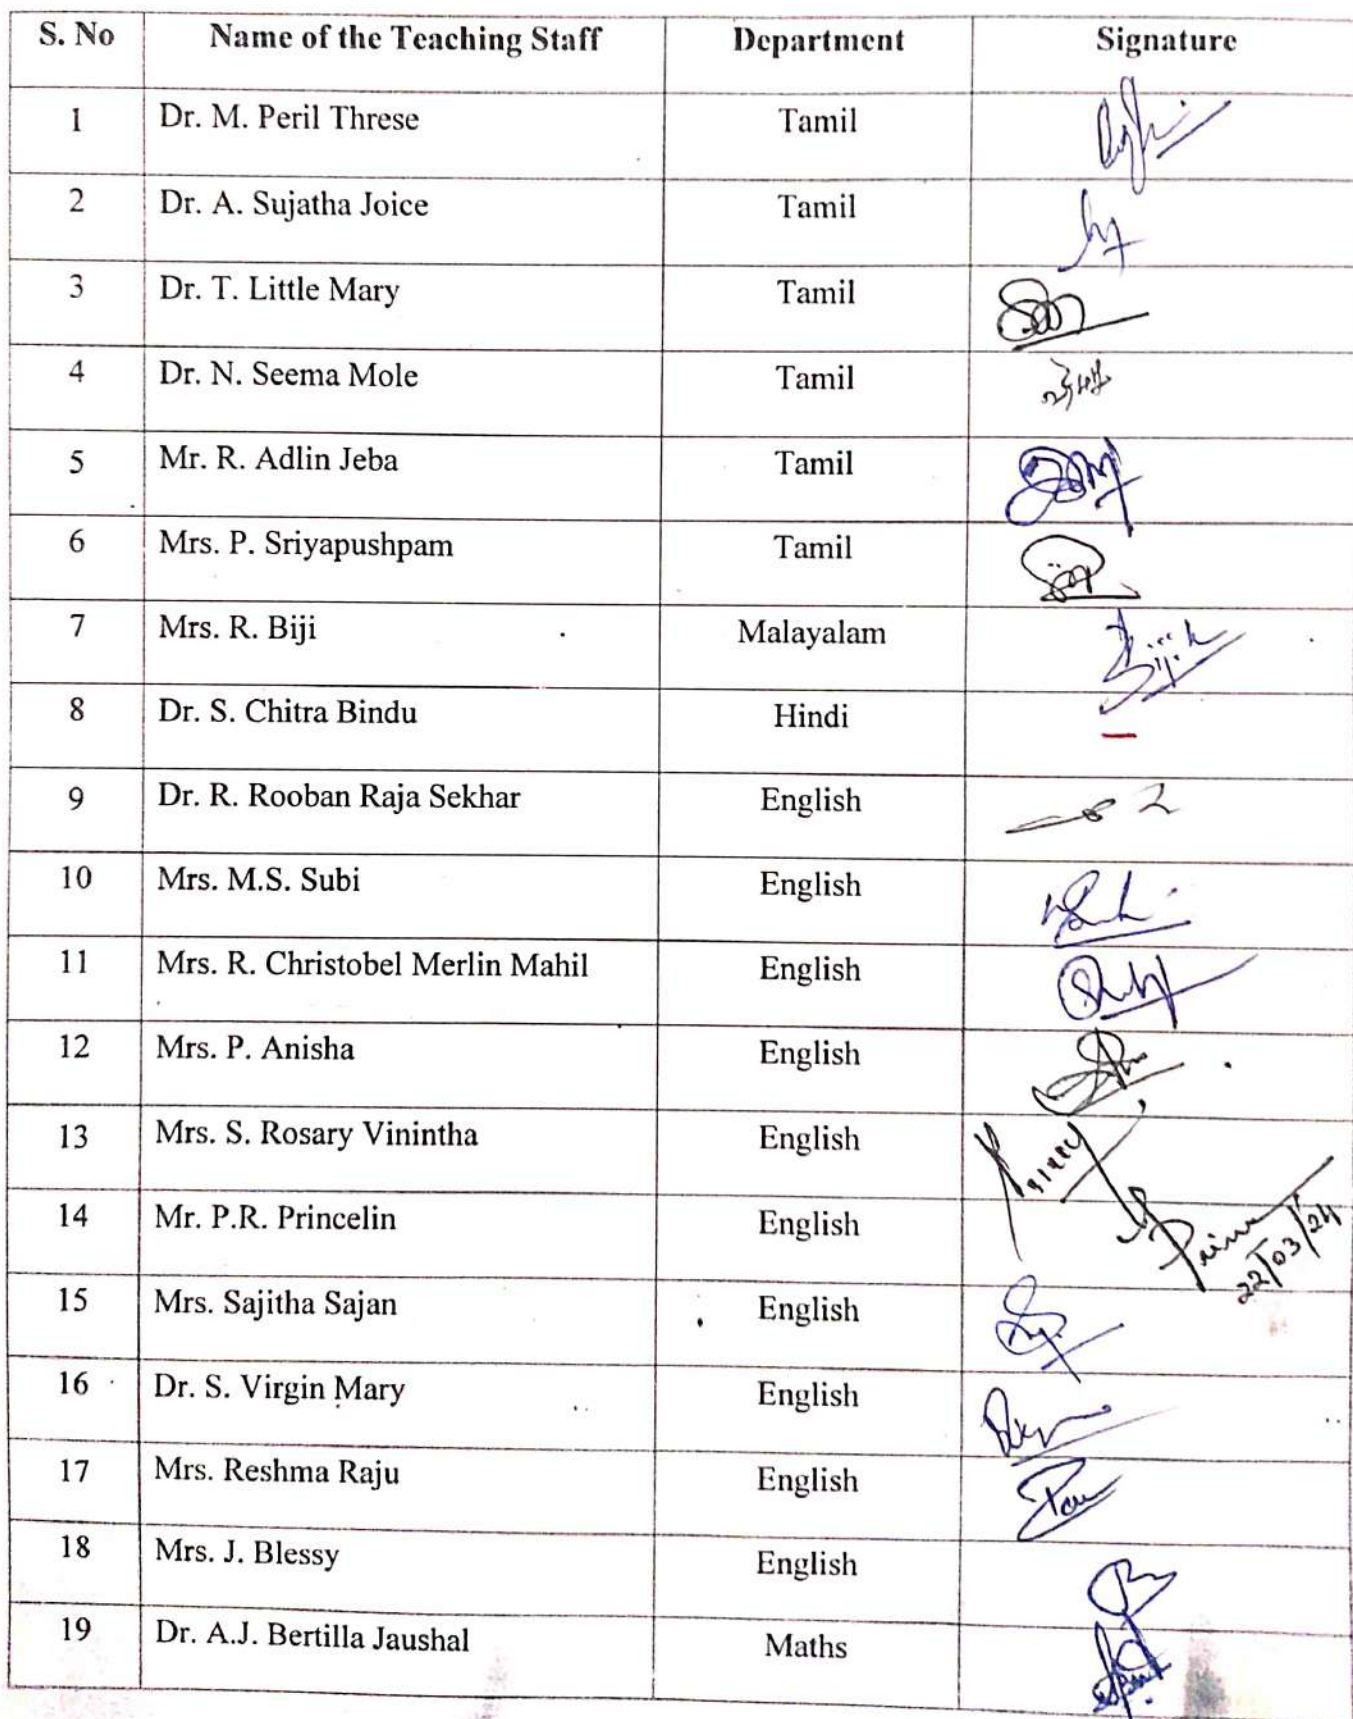 S. No Name of the Teaching Staff Department Signature
1 Dr. M. Peril Threse Tamil
2 Dr. A. Sujatha Joice Tamil
3 Dr. T. Little Mary Tamil
4 Dr. N. Seema Mole Tamil
5 Mr. R. Adlin Jeba Tamil
6 Mrs. P. Sriyapushpam Tamil
7 Mrs. R. Biji Malayalam
8 Dr. S. Chitra Bindu Hindi
9 Dr. R. Rooban Raja Sekhar English
10 Mrs. M.S. Subi English
11 Mrs. R. Christobel Merlin Mahil English
12 Mrs. P. Anisha English
13 Mrs. S. Rosary Vinintha English
14 Mr. P.R. Princelin English
22/03/24
15 Mrs. Sajitha Sajan English
16 Dr. S. Virgin Mary English
17 Mrs. Reshma Raju English
18 Mrs. J. Blessy English
19 Dr. A.J. Bertilla Jaushal Maths